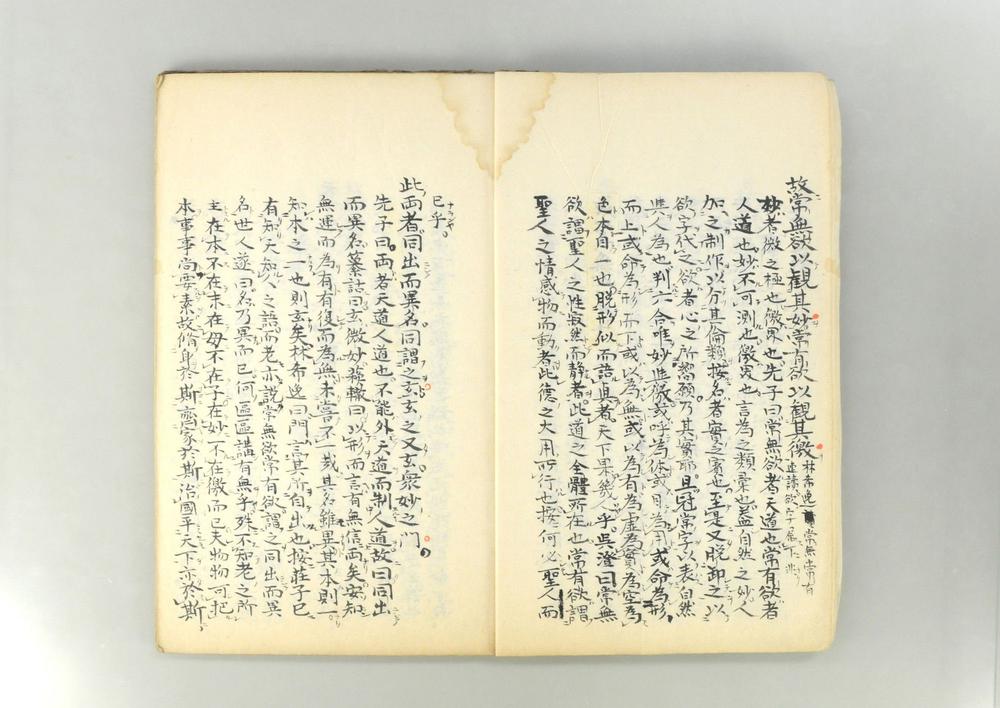 故常無欲以觀其妙常有欲以觀其徼
林希逸 常無常有
並讀欲字屬下 非
妙者微之極也徼界也先子曰常無欲者天道也常有欲者
人道也妙不可測也徼界也言為之類彙也蓋自然之妙人
加之制作以分其倫類按名者實之賓也至是又脫卸之以
欲字代之欲者心之所都願乃其實耶且冠常字以表自然
與人為也判六合唯妙與徼或呼為体或目為用或命為形
而上或命為形而下或以為無或以為有為虛為實為空為
色本自一也脫形似而詣真者天下果幾人乎吳澄曰常無
欲謂聖人之性寂然而靜者此道之全體所在也常有欲謂
聖人之情感物而動者此德之大用所行也按何必聖人而
已乎
此兩者同出而異名同謂之玄玄之又玄衆妙之門
先子曰兩者天道人道也不能外天道而制人道故曰同出
而異名纂誌曰玄微妙蘇轍曰以形而言有無信兩矣安知
無運而為有有復而為無未嘗不一哉其名雖異其本則一
知本之一也則玄矣林希逸曰門言其所自出也按莊子已
有知天知人之語而老亦說常無欲常有欲謂之同出而異
名世人遂曰名乃異而已何區區講有無乎殊不知老之所
主在本不在末在母不在子在妙不在徼而已夫物物可把
本事事尚要素故脩身於斯齊家於斯治國平天下亦於斯